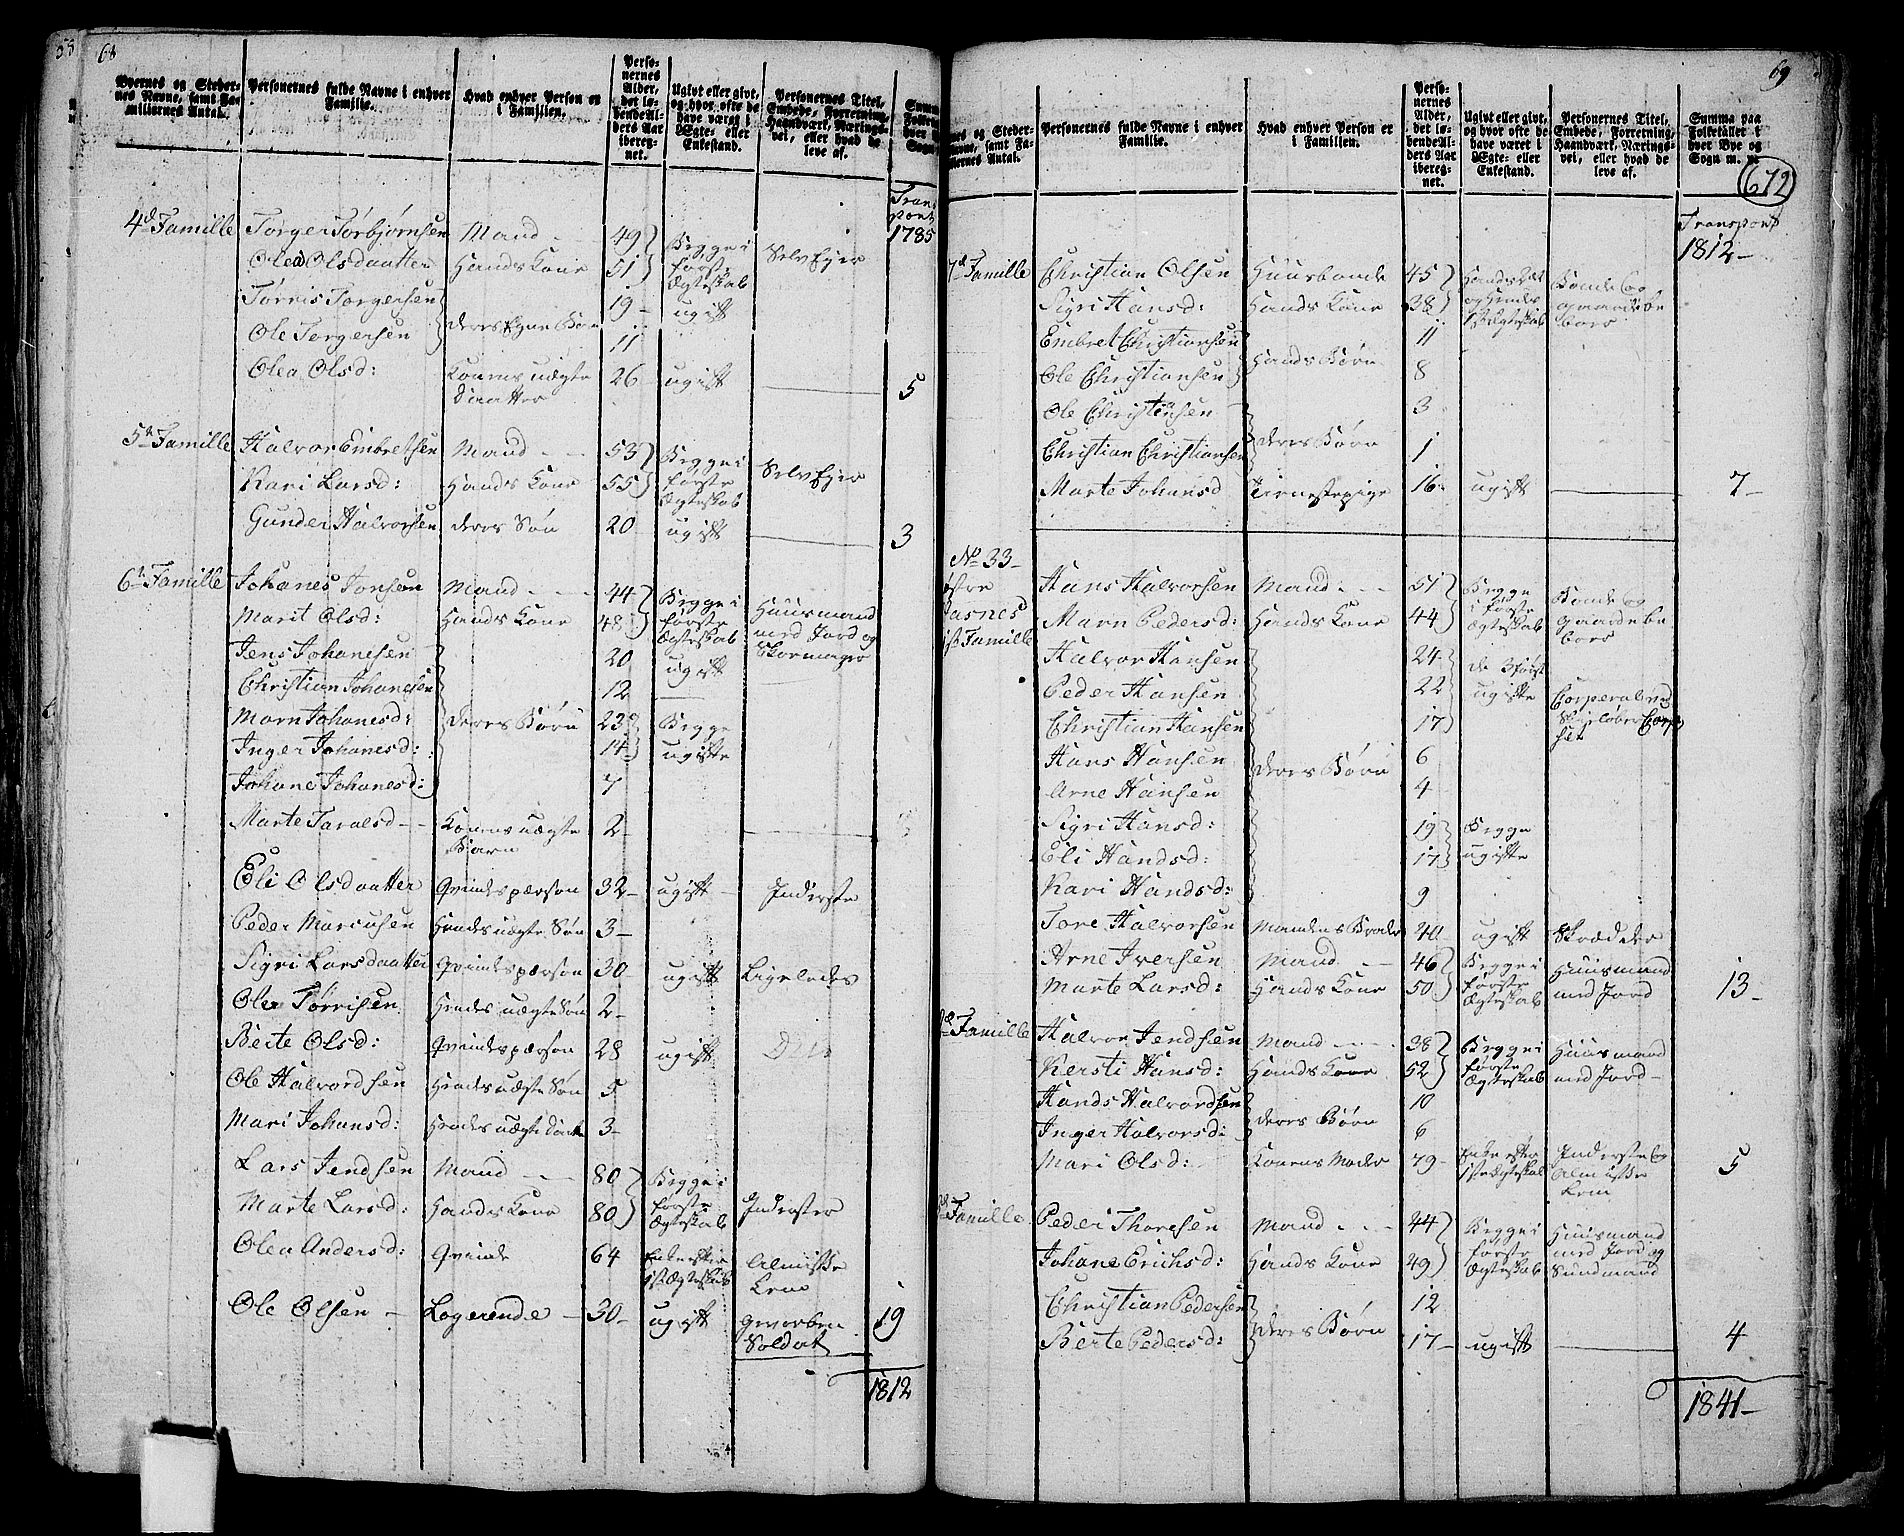 68
Byernes og Steder-
nes Navne, samt Fa-
miliernes Antal.
Personernes fulde Navne i enhver
Familie.
Hvad enhver Person er
i Familien.
Perso-
nernes
Alder,
det lø-
bende Al-
ders Aar
ibereg-
net.
Ugivt eller givt,
og hvor ofte de
have været i
Ægte- eller
Enkestand.
Personernes Titel,
Embede, Forretning,
Haandværk, Nærings-
vei, eller hvad de
leve af.
Transport
1785
4d Famille Torger Torbjørnsen Mand 49 Begge i første Ægteskab SelvEjer
Olea Olsdaatter Hands Kone 51
Torris Torgersen deres Egne Børn 19 ugift
Ole Torgersen 11
Olea Olsd: Konens uægte Daatter 26 ugift 5
5te Famille Halvor Embretsen Mand 53 Begge i første Ægteskab SelvEjer
Kari Larsd: Hands Kone 55
Gunder Halvorsen deres Søn 20 ugift 3
6te Famille Johanes Jonsen Mand 44 Begge i første Ægteskab Huusmand med Jord og Skomager
Marit Olsd: Hands Kone 48
Jens Johanesen 20 ugift
Christian Johanesen 12
Marn Johanesd: deres Børn 23 Begge ugifte
Inger Johanesd: 14
Johane Johanesd: 7
Marte Taralsd Konens uægte Barn 2
Eli Olsdaatter Qvindesperson 32 ugift Inderste
Peder Marcusen Hendes uægte Søn 3
Sigri Larsdaatter Qvindesperson 30 ugift Ligeledes
Ole Torrisen Hendes uægte Søn 2
Berte Olsd: Qvindesperson 28 ugift Dito
Ole Halvordsen Hendes uægte Søn 5
Mari Johansd: Hendes uægte Datter 3
Lars Jendsen Mand 80 Begge i første Ægteskab Inderster
Marte Larsd: Hands Kone 80
Olea Andersd: Qvinde 64 Enke efter 1ste Ægteskab Almisse Lem
Ole Olsen Logerende 30 ugift Gevorben Soldat 19
1812
69
Personernes fulde Navne i enhver
Familie.
Hvad enhver Person er
i Familien.
Perso-
nernes
Alder,
det lø-
bende Al-
ders Aar
ibereg-
net.
Ugivt eller givt,
og hvor ofte de
have været i
Ægte- eller
Enkestand.
Personernes Titel,
Embede, Forretning,
Haandværk, Nærings-
vei, eller hvad de
leve af.
Summa paa
Folketallet i
hver Bye og
Sogn m. m.
672
Transport
1812
7de Famille Christian Olsen Huusbonde 45 Bonde og gaardbeboer
Sigri Hansd: Hands Kone 38 og Hendes 1ste Ægteskab
Embret Christiansen Hands Børn 11
Ole Christiansen 8
Ole Christiansen deres Børn 3
Christian Christiansen 1
Marte Johansd Tienestepige 16 ugift 7
No 33
Østre
1ste Famille Hans Halvorsen Mand 51 Begge i første Ægteskab Bonde og gaardbeboer
Marn Pedersd: Hands Kone 44
Halvor Hansen 24 de 3 første ugifte
Peder Hansen 22 Corperal ved Skieløber Corpset
Christian Hansen 17
Hans Hansen deres Børn 6
Arne Hansen 4
Sigri Hansd: 19 Begge ugifte
Eli Handsd: 17
Kari Handsd: 9
Tore Halvorsen Mandens Broder 40 ugift Skrædder
Arne Iversen Mand 46 Begge i første Ægteskab Huusmand med Jord
Marte Larsd: Hands Kone 50 13
Famille Halvor Jendsen Mand 38 Begge i første Ægteskab Huusmand med Jord
Kersti Hansd: Hands Kone 52
Hands Halvordsen deres Børn 10
Inger Halvorsd: 6
Mari Olsd: Konens Moder 79 Enke efter 1ste Ægteskab Inderste og Almisse Lem 5
Famille Peder Thoresen Mand 44 Begge i første Ægteskab Huusmand med Jord og Sundmand
Johane Erichsd: Hands Kone 49
Christian Pedersen deres Børn 12
Berte Pedersd: 17 ugift 4
1841